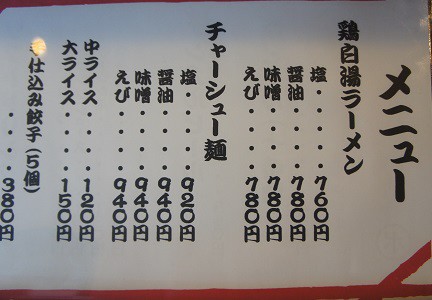 メニュー
鶏白湯ラーメン
塩・・・・760円
醤油・・・780円
味噌・・・780円
えび・・・780円
チャーシュー麺
塩・・・・920円
醤油・・・940円
味噌・・・940円
えび・・・940円
中ライス・・・120円
大ライス・・・150円
仕込み餃子(5個)
・・・380円